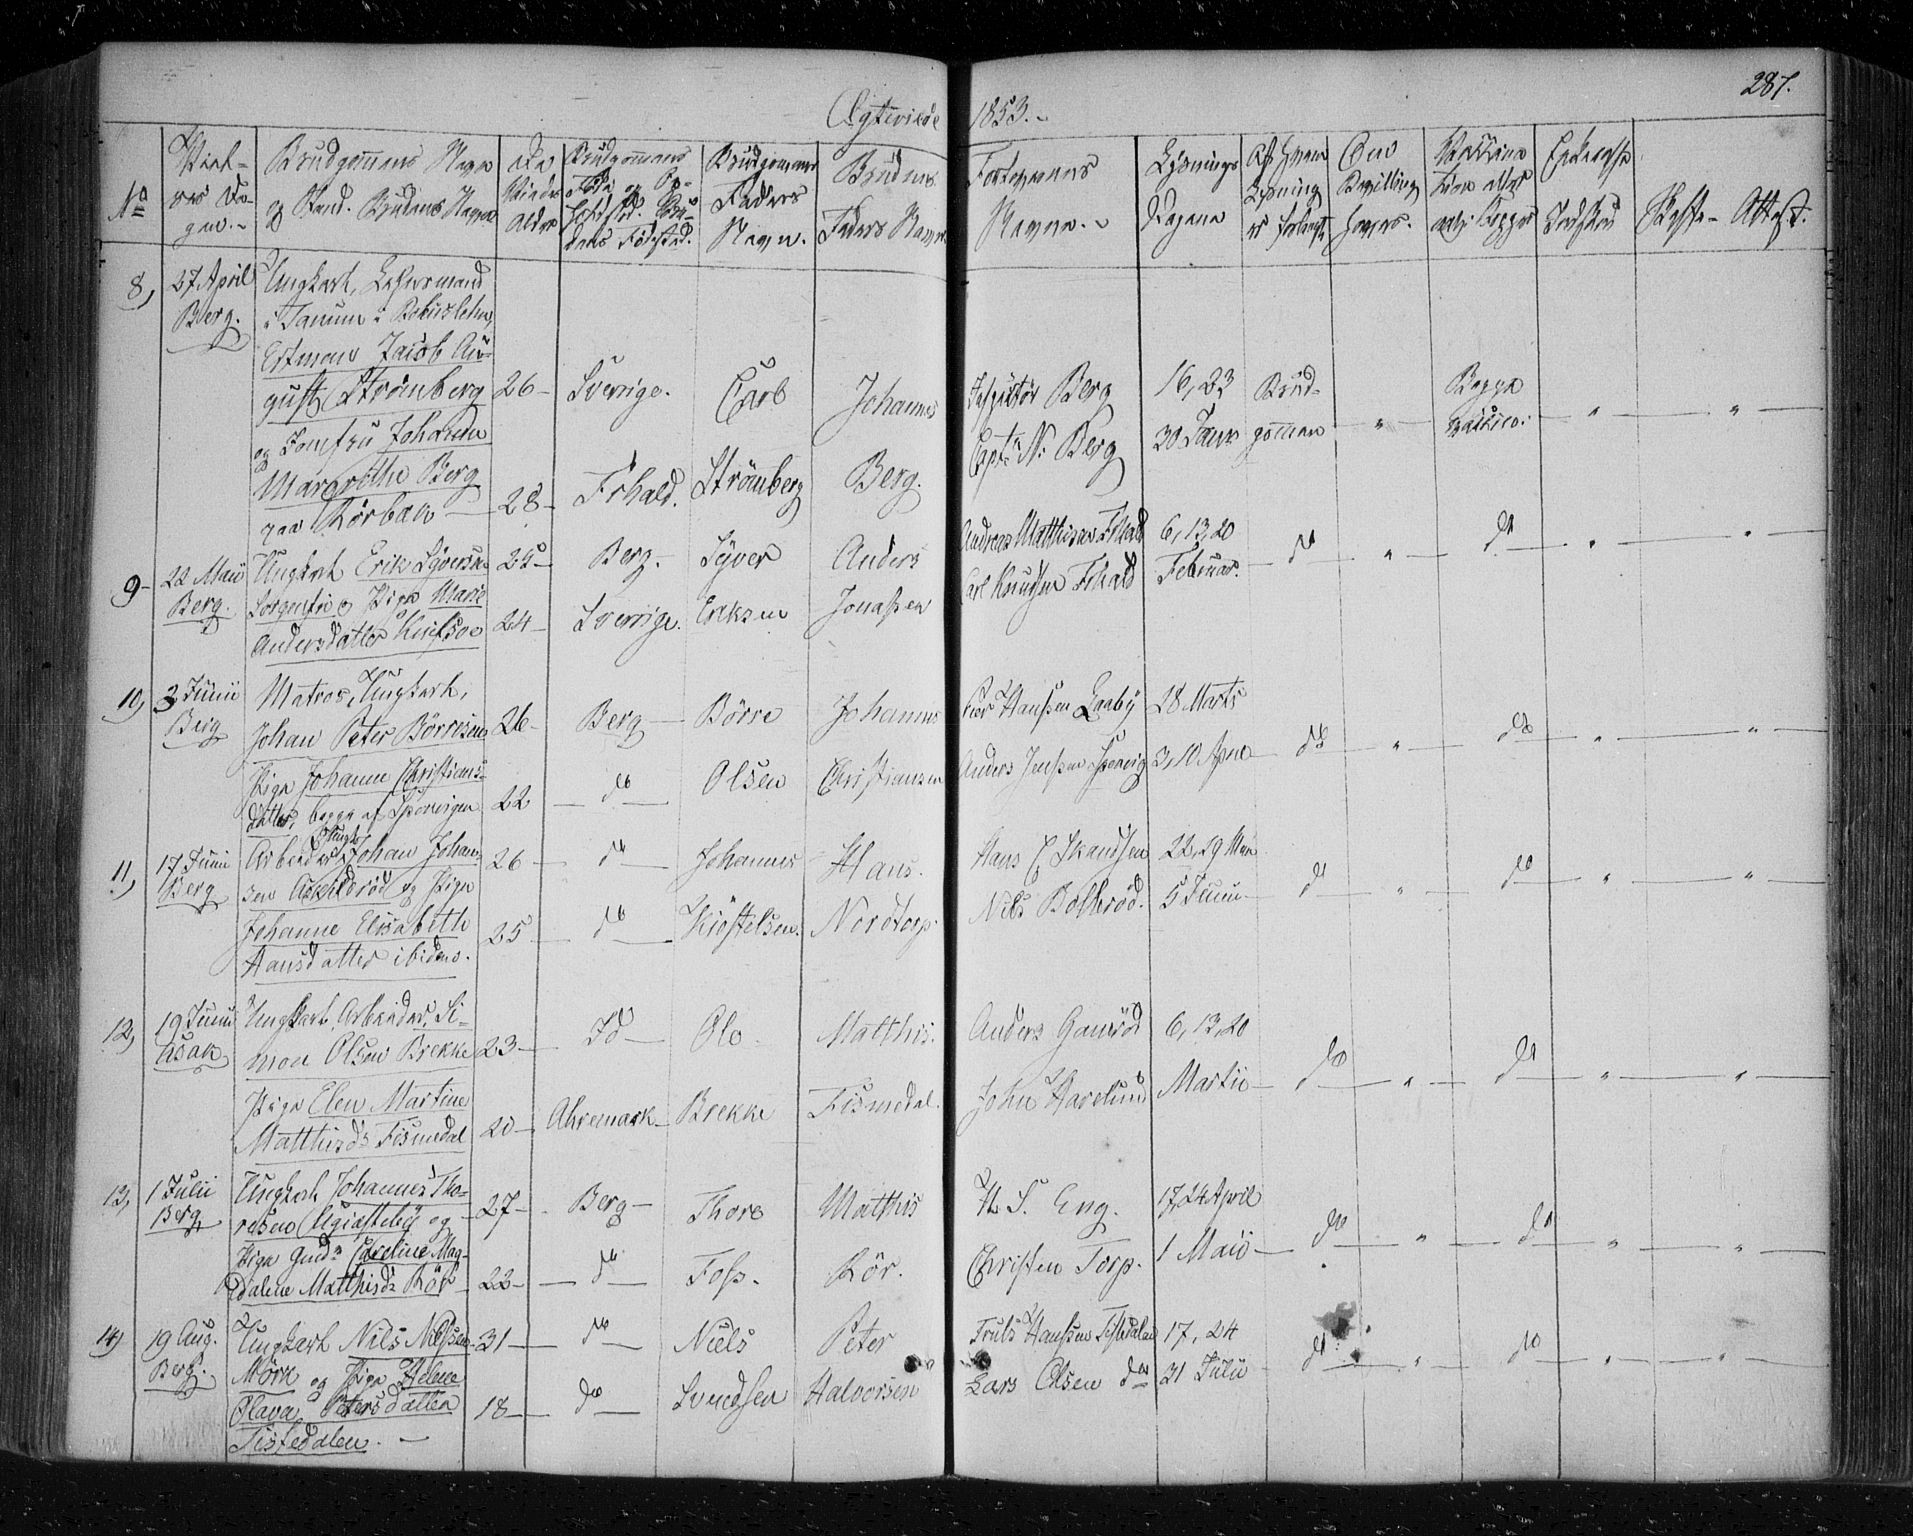 287.
Ægteviede 1853.
No
Viel-
ses Da-
gen.
Brudgommens Navn
og Stand. Brudens Navn
De
Viedes
Alder
Brudgommens
Føde og Op-
holdsted. Bru-
dens Fødested.
Brudgommens
Faders
Navn.
Brudens
Faders Navn
Forlovernes
Navne.
Lysnings
Dagene
Af hvem
Lysning
er forlangt
Om
Bevilling
haves.
Attest.
8,
27 April
Berg.
Ungkarl,
i Tanum i Bohuslehn,
Jacob Au-
gust Strömberg
og Jomfru Johanne
Margrethe Berg
paa Rørbæk
26
28
Sverrige.
Fr.hald.
Carl
Strömberg
Johannes
Berg.
Berg
Capt. N. Berg
16, 23
30 Janr
Brud-
gommen
Begge
9
22 Maii
Berg.
Ungkarl Erik Syversen
Sorgenfri og Pige Marie
Andersdatter Knifsøe
25
24
Berg.
Sverrige.
Syver
Eriksen
Anders
Jonassen
Andreas Matthisen F.hald
Carl Knudsen F.hald
6, 13, 20
Februar.
do
do
10,
3 Junii
Berg
Matros, Ungkarl,
Johan Peter Börresen
Pige Johanne Christians-
datter, begge af Sponvigen
26
22
Berg
do
Börre
Olsen
Johannes
Christiansen
Peer Hanssen Laaby
Anders Jenssen Sponvig
28 Marts
3, 10 April
do
do
11,
17 Junii
Berg
Ungk.
Arbeider Johan Johan-
sen Askildrød og Pige
Johanne Elisabeth
Hansdatter ibidem.
26
25
do
do
Johannes
Kristofelsen.
Hans.
Nordtorp.
Hans
Nils Bollerød.
22, 29 Maii
5 Junii
do
do
12,
19 Junii
Asak
Ungkarl, Arbeider, Si-
mon Olsen Brekke
Pige Elen Martine
Matthisd. Fismedal
23
20
Id
Ahremark
Ole
Brekke
Matthis.
Fismedal.
Anders Gamrød
John Havelund
6, 13, 20
Martii
do
do
13,
1 Julii
Berg
Ungkarl Johannes Tho-
resen og
Pige Gud. Careline Mag-
dalene Matthisd. Rör
27
22
Berg
do
Thore
Foss.
Matthis
Rör.
H. S. Eng.
Christen Torp.
17, 24 April
1 Maii
do
do
14,
19 Aug.
Berg.
Ungkarl Nils Nilsen
Mörk og Pige Helene
Olava Petersdatter
Tistedalen.
31
18
do
do
Niels
Svendsen
Peter
Halvorsen
Truls Hanssen Tistedalen
Lars Olsen do
17, 24
31 Julii
do
do